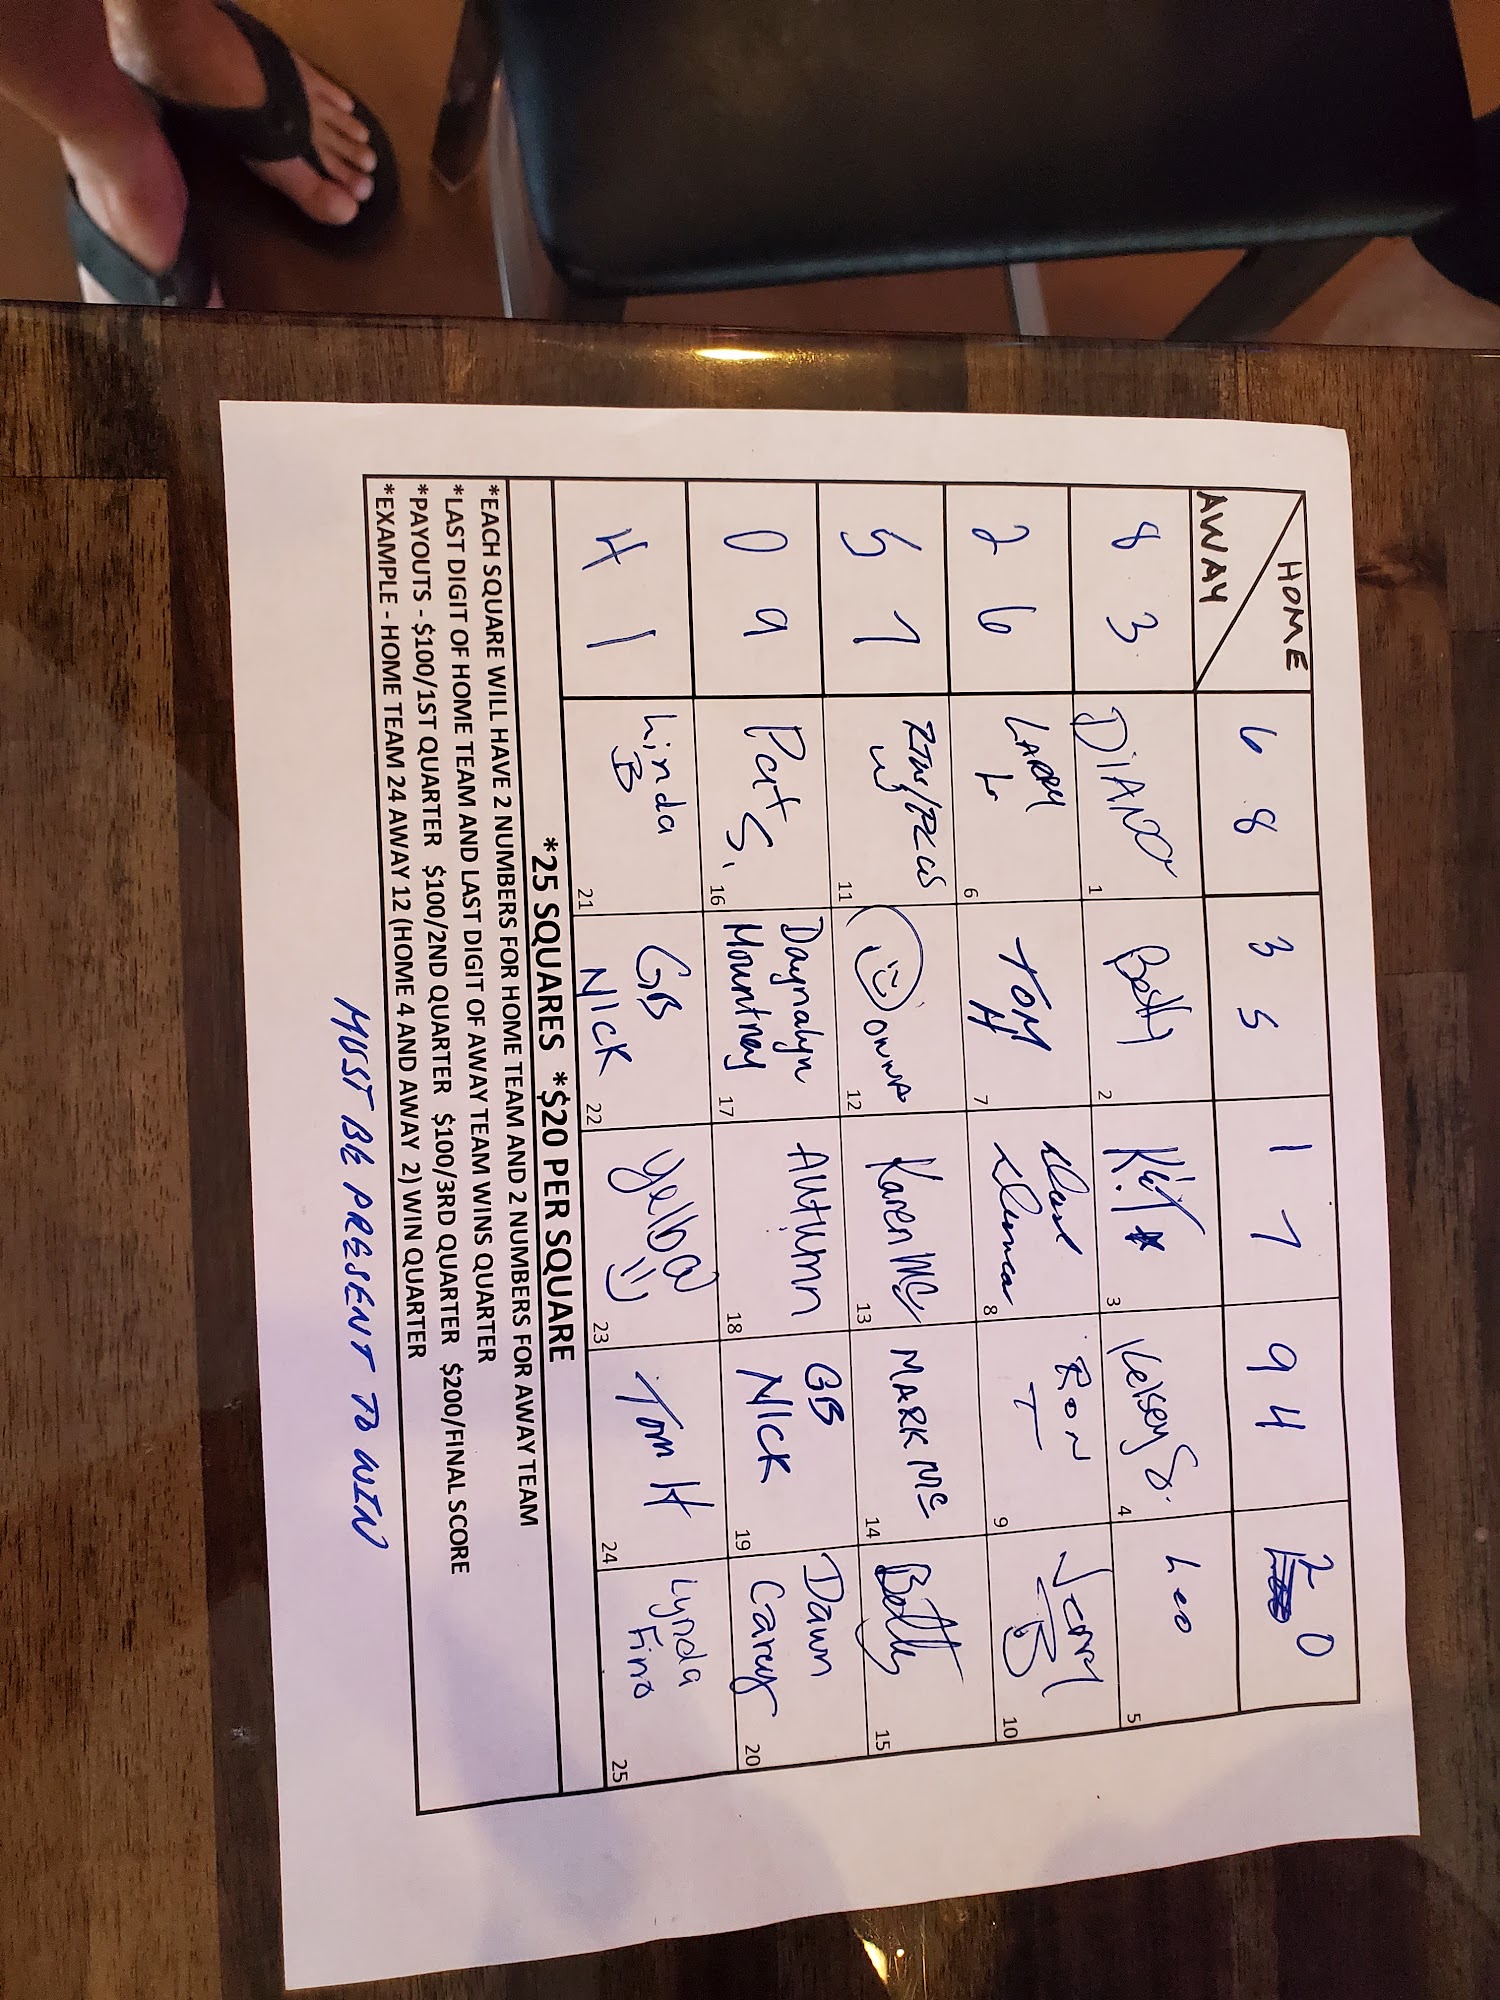 HOME
AWAY
6 8
3 5
1 7
9 4
2 0
8 3
DIANO
1
Betty
2
Kit
3
Kelsey S.
4
Leo
5
2 6
LARRY
L
6
TOM
H
7
8
RON
T
9
JERRY
B
10
5 7
11
ONNA
12
Karen Mc
13
MARK Mc
14
Betty
15
0 9
Pat S.
16
Daynalyn
Mountney
17
AUTUMN
18
GB
NICK
19
Dawn
Carey
20
4 1
Linda
B
21
GB
NICK
22
Yelba
23
Tom H
24
Lynda
Fino
25
*25 SQUARES *$20 PER SQUARE
*EACH SQUARE WILL HAVE 2 NUMBERS FOR HOME TEAM AND 2 NUMBERS FOR AWAY TEAM
*LAST DIGIT OF HOME TEAM AND LAST DIGIT OF AWAY TEAM WINS QUARTER
*PAYOUTS - $100/1ST QUARTER $100/2ND QUARTER $100/3RD QUARTER $200/FINAL SCORE
*EXAMPLE - HOME TEAM 24 AWAY 12 (HOME 4 AND AWAY 2) WIN QUARTER
MUST BE PRESENT TO WIN